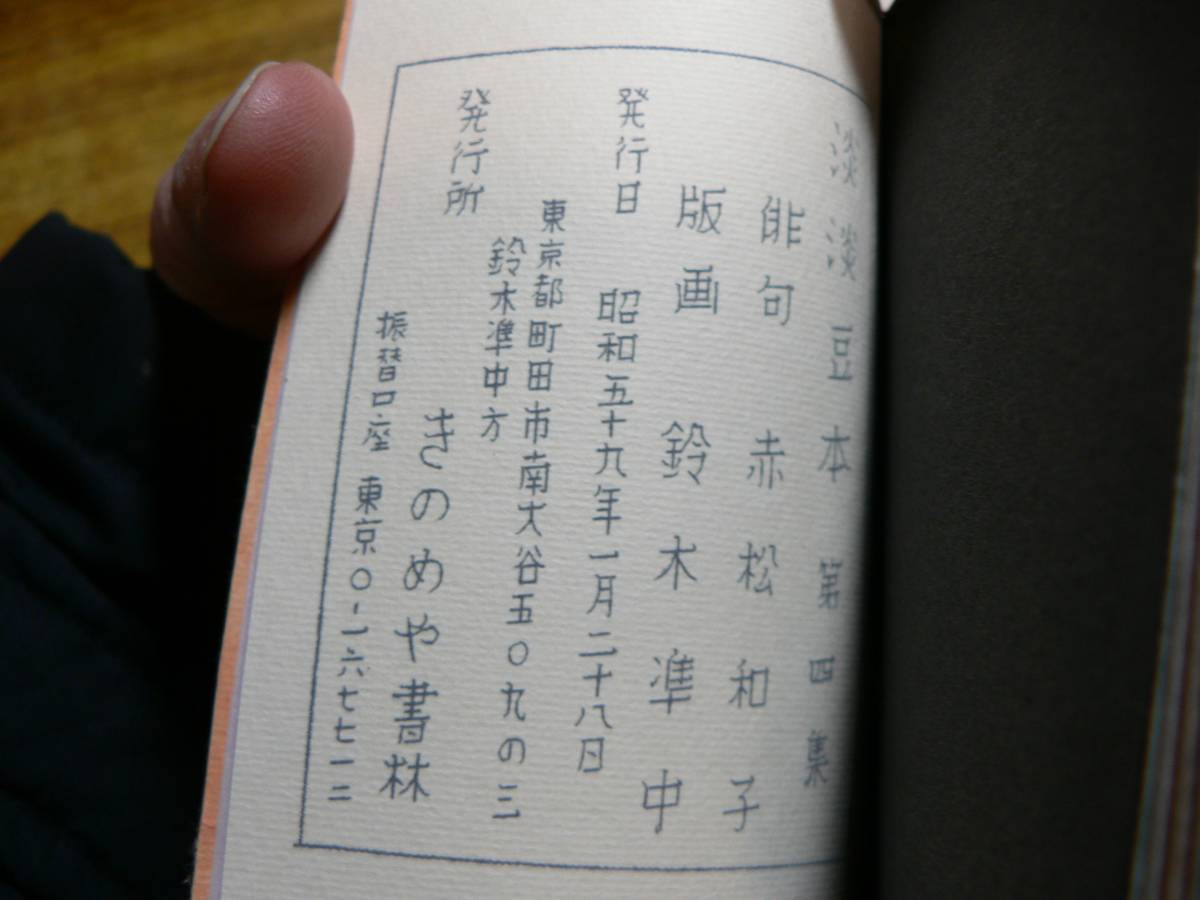 淡淡豆本第四集
俳句 赤松和子
版画 鈴木凖中
発行日 昭和五十九年一月二十八日
東京都町田市南大谷五〇九の三
鈴木凖中方
発行所 きのめや書林
振替口座 東京〇-一六七七一二